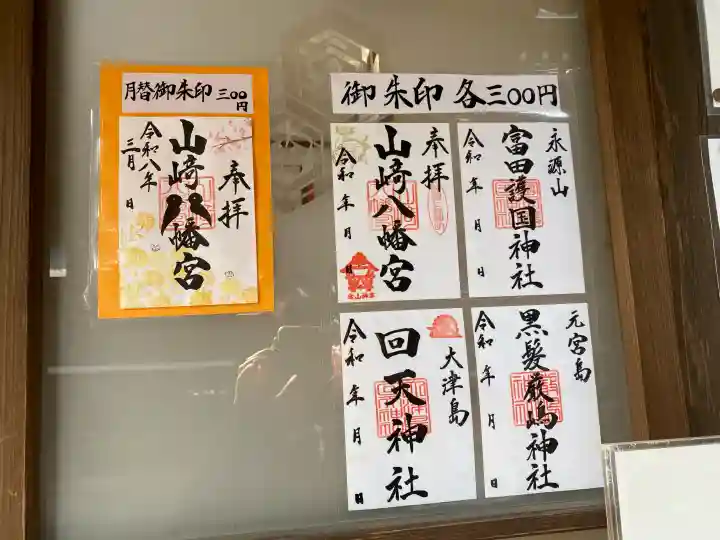 月替御朱印 三〇〇円
奉拝
山崎八幡宮
令和八年
三月 日
御朱印 各三〇〇円
奉拝
山崎八幡宮
令和 年 月 日
永源山
富田護国神社
令和 年 月 日
大津島
回天神社
令和 年 月 日
元宮島
黒髪厳嶋神社
令和 年 月 日